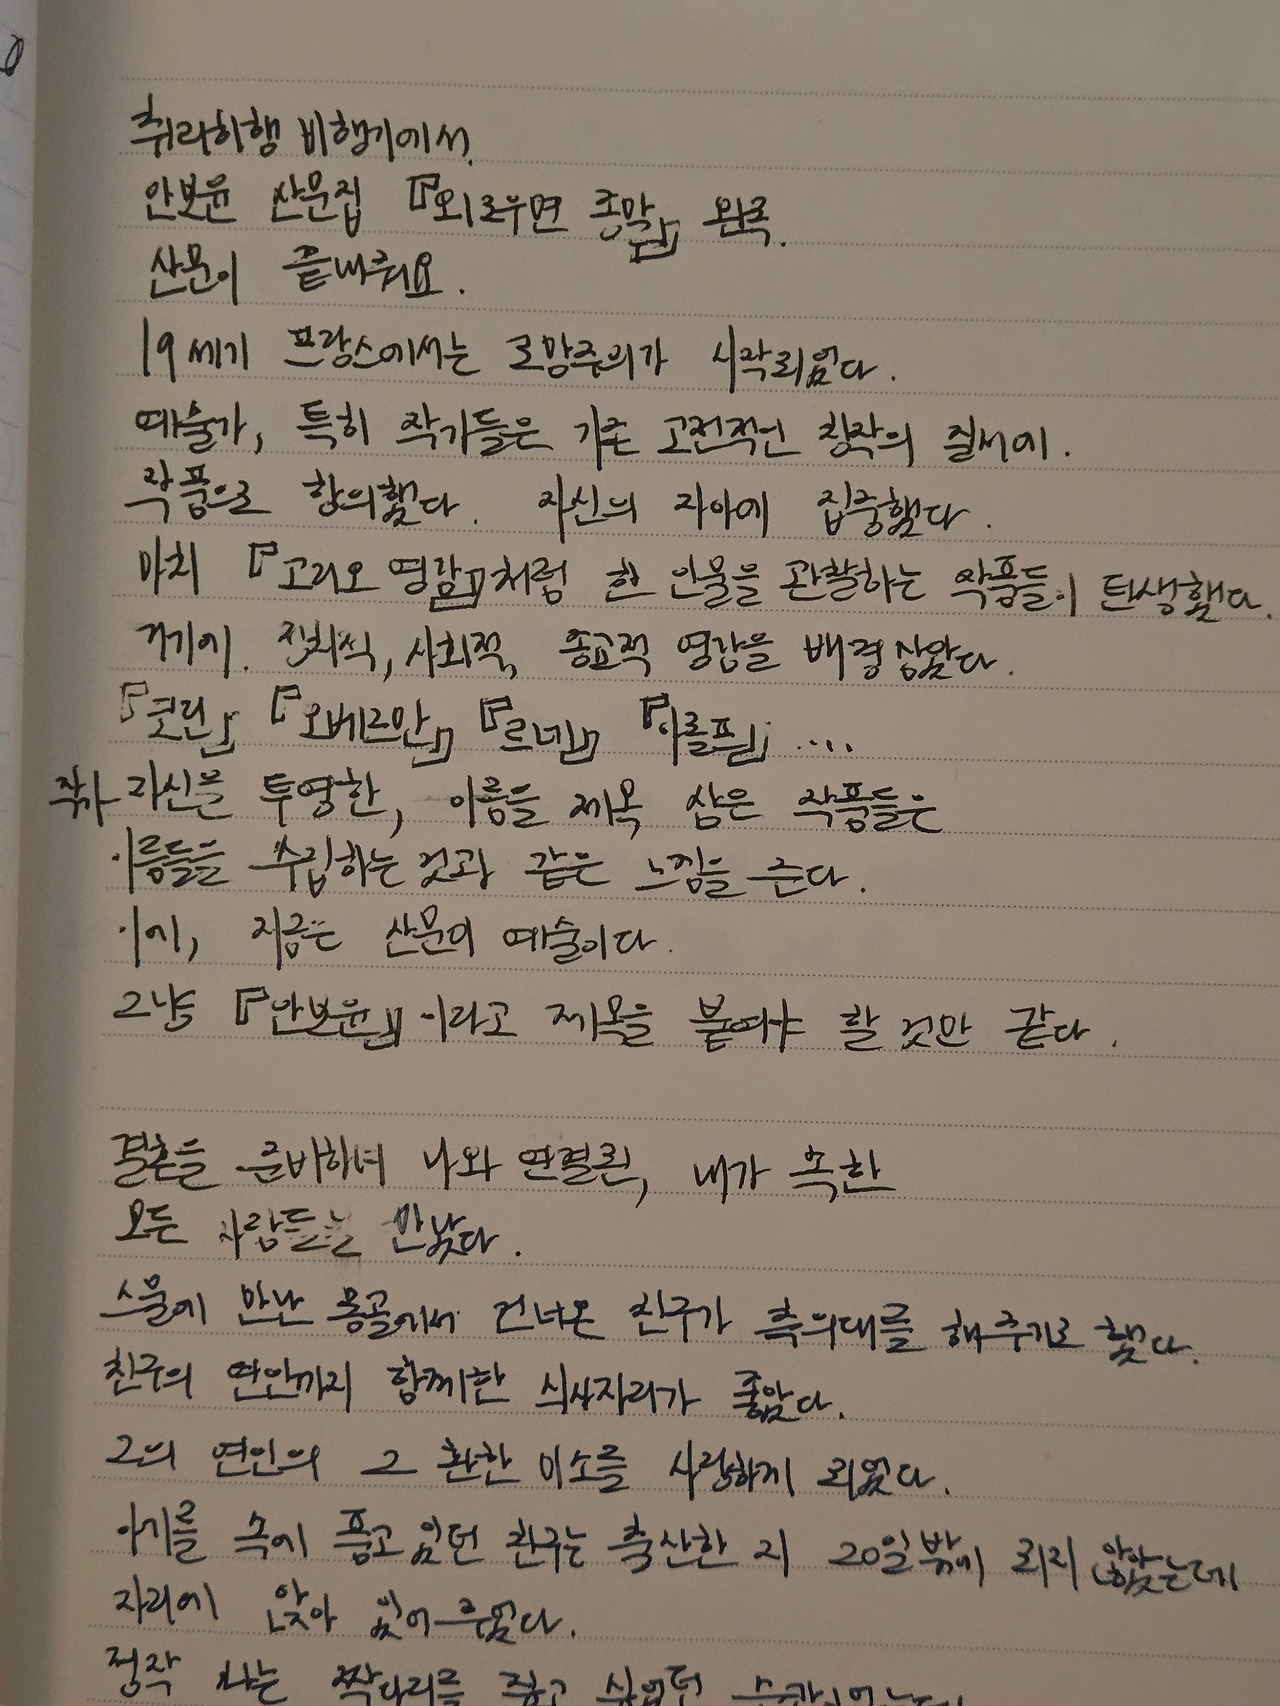 취리히행 비행기에서.
안보윤 산문집 『외로우면 종말』 완독.
산문이 끝내줘요.
19세기 프랑스에서는 로망주의가 시작되었다.
예술가, 특히 작가들은 기존 고전적인 창작의 질서에.
작품으로 항의했다. 자신의 자아에 집중했다.
마치 『고리오 영감』처럼 한 인물을 관찰하는 작품들이 탄생했다.
거기에. 정치적, 사회적, 종교적 영감을 배경 삼았다.
『코린』 『오베르만』 『르네』 『아돌프』 ....
작가 자신을 투영한, 이름을 제목 삼은 작품들은
이름들을 수집하는 것과 같은 느낌을 준다.
이에, 지금은 산문이 예술이다.
그냥 『안보윤』이라고 제목을 붙여야 할 것만 같다.
결혼을 준비하며 나와 연결된, 내가 속한
모든 사람들을 만났다.
스물에 만난 몽골에서 건너온 친구가 축의대를 해주기로 했다.
친구의 연인까지 함께한 식사자리가 좋았다.
그의 연인의 그 환한 미소를 사랑하게 되었다.
아기를 속에 품고 있던 친구는 출산한 지 20일밖에 되지 않았는데
자리에 앉아 있어주었다.
정작 나는 짝다리를 짚고 싶었던 순간이었는데